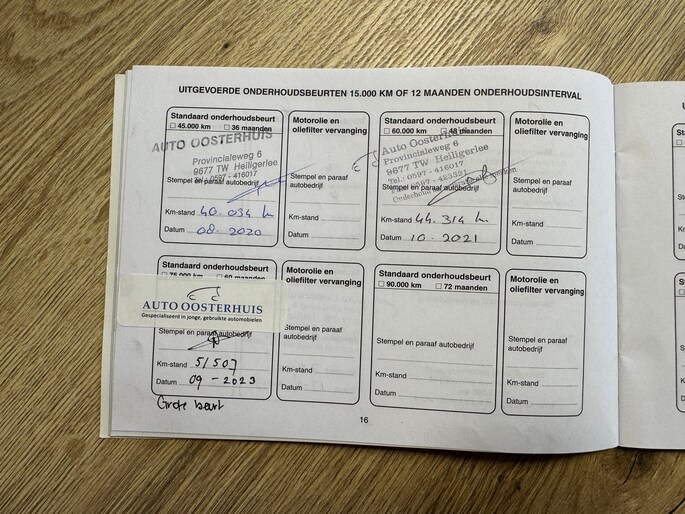 UITGEVOERDE ONDERHOUDSBEURTEN 15.000 KM OF 12 MAANDEN ONDERHOUDSINTERVAL
Standaard onderhoudsbeurt
45.000 km 36 maanden
AUTO OOSTERHUIS
Provincialeweg 6
9677 TW Heiligerlee
Tel. 0597 - 416017
Stempel en paraaf autobedrijf
Km-stand 40.034 km
Datum 08 - 2020
Motorolie en
oliefilter vervanging
Stempel en paraaf
autobedrijf
Km-stand
Datum
Standaard onderhoudsbeurt
60.000 km 48 maanden
Auto Oosterhuis
Provincialeweg 6
9677 TW Heiligerlee
Tel.: 0597 - 416017
0597 - 423321
Stempel en paraaf autobedrijf
Km-stand 44.314 km
Datum 10 - 2021
Motorolie en
oliefilter vervanging
Stempel en paraaf
autobedrijf
Km-stand
Datum
Standaard onderhoudsbeurt
75.000 km 60 maanden
AUTO OOSTERHUIS
Gespecialiseerd in jonge, gebruikte automobielen
Stempel en paraaf autobedrijf
Km-stand 51507
Datum 09 - 2023
Grote beurt
Motorolie en
oliefilter vervanging
Stempel en paraaf
autobedrijf
Km-stand
Datum
Standaard onderhoudsbeurt
90.000 km 72 maanden
Stempel en paraaf autobedrijf
Km-stand
Datum
Motorolie en
oliefilter vervanging
Stempel en paraaf
autobedrijf
Km-stand
Datum
16